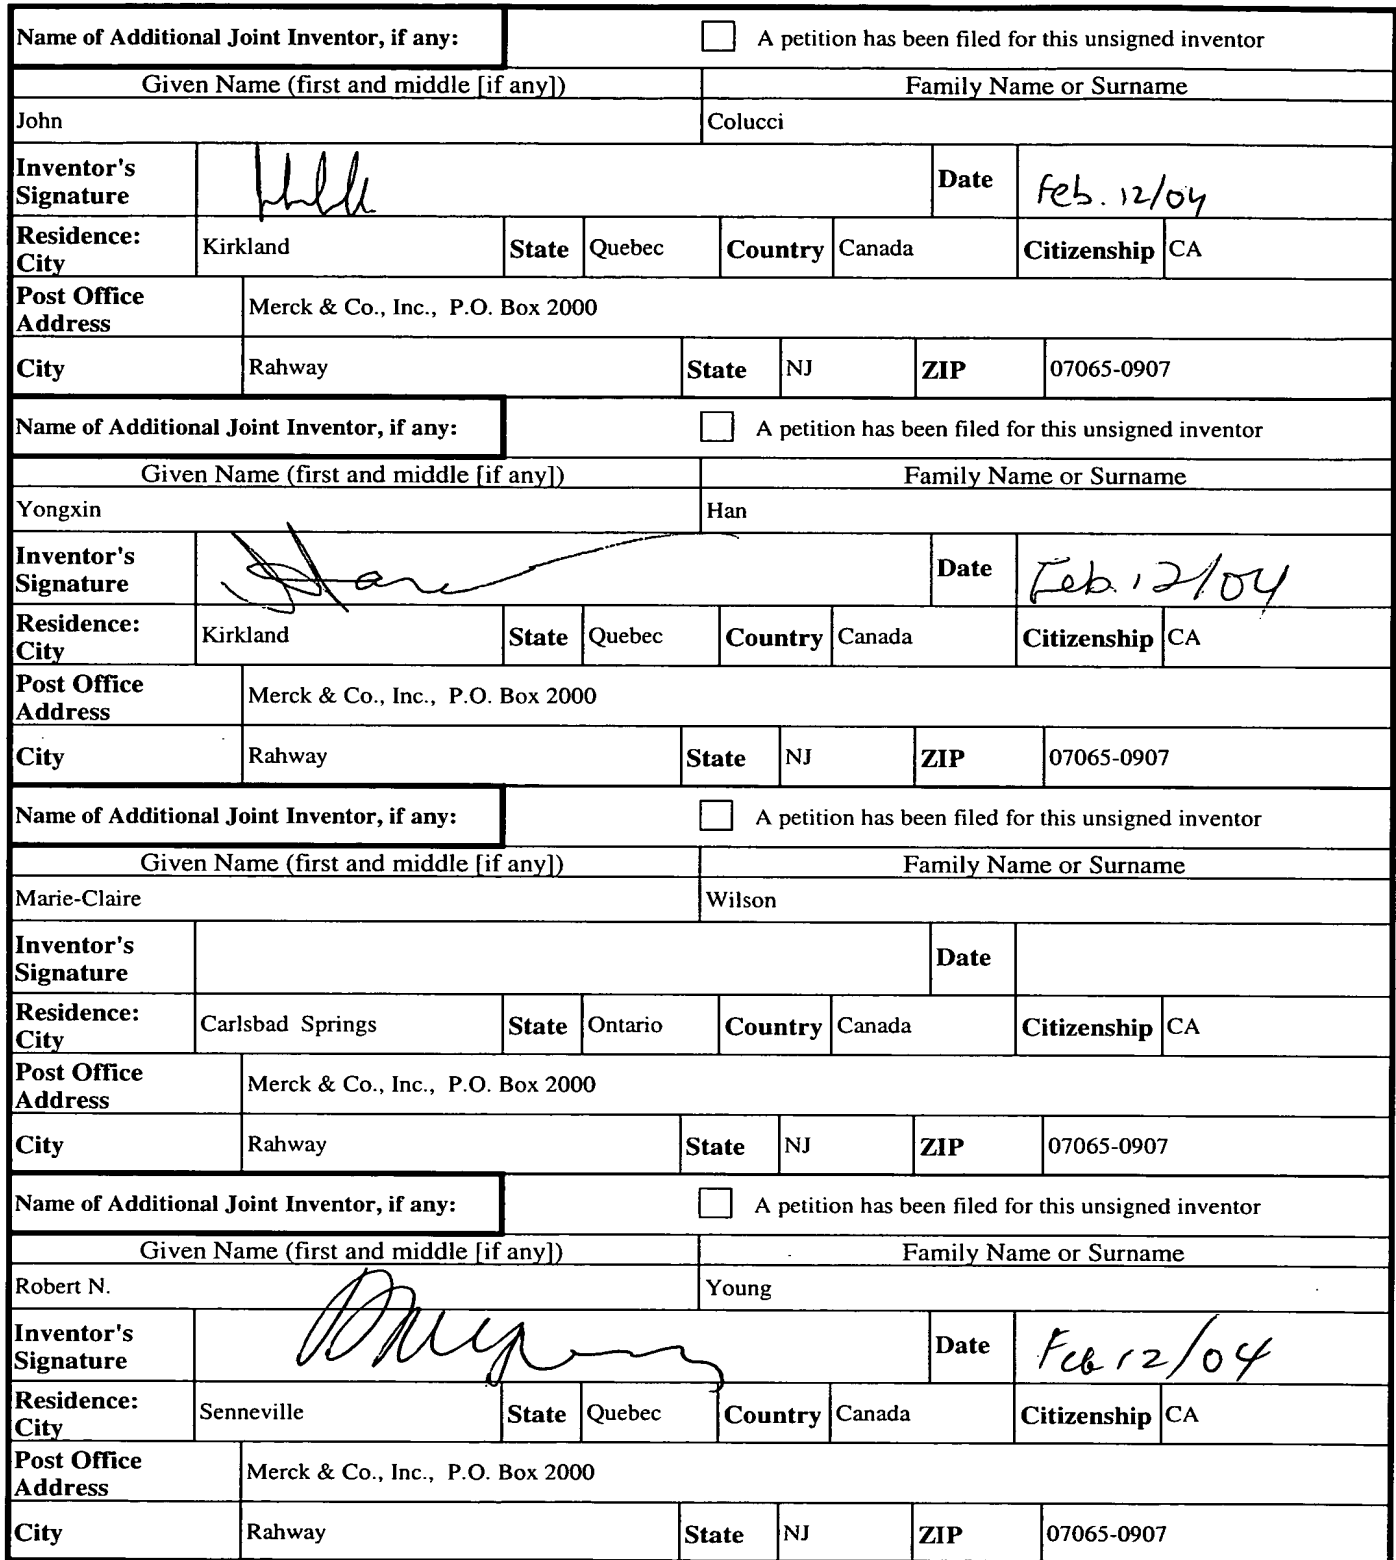 Name of Additional Joint Inventor, if any: A petition has been filed for this unsigned inventor
Given Name (first and middle [if any]) Family Name or Surname
John Colucci
Inventor's Signature Date Feb. 12/04
Residence: City Kirkland State Quebec Country Canada Citizenship CA
Post Office Address Merck & Co., Inc., P.O. Box 2000
City Rahway State NJ ZIP 07065-0907
Name of Additional Joint Inventor, if any: A petition has been filed for this unsigned inventor
Given Name (first and middle [if any]) Family Name or Surname
Yongxin Han
Inventor's Signature Date Feb. 12/04
Residence: City Kirkland State Quebec Country Canada Citizenship CA
Post Office Address Merck & Co., Inc., P.O. Box 2000
City Rahway State NJ ZIP 07065-0907
Name of Additional Joint Inventor, if any: A petition has been filed for this unsigned inventor
Given Name (first and middle [if any]) Family Name or Surname
Marie-Claire Wilson
Inventor's Signature Date
Residence: City Carlsbad Springs State Ontario Country Canada Citizenship CA
Post Office Address Merck & Co., Inc., P.O. Box 2000
City Rahway State NJ ZIP 07065-0907
Name of Additional Joint Inventor, if any: A petition has been filed for this unsigned inventor
Given Name (first and middle [if any]) Family Name or Surname
Robert N. Young
Inventor's Signature Date Feb 12/04
Residence: City Senneville State Quebec Country Canada Citizenship CA
Post Office Address Merck & Co., Inc., P.O. Box 2000
City Rahway State NJ ZIP 07065-0907